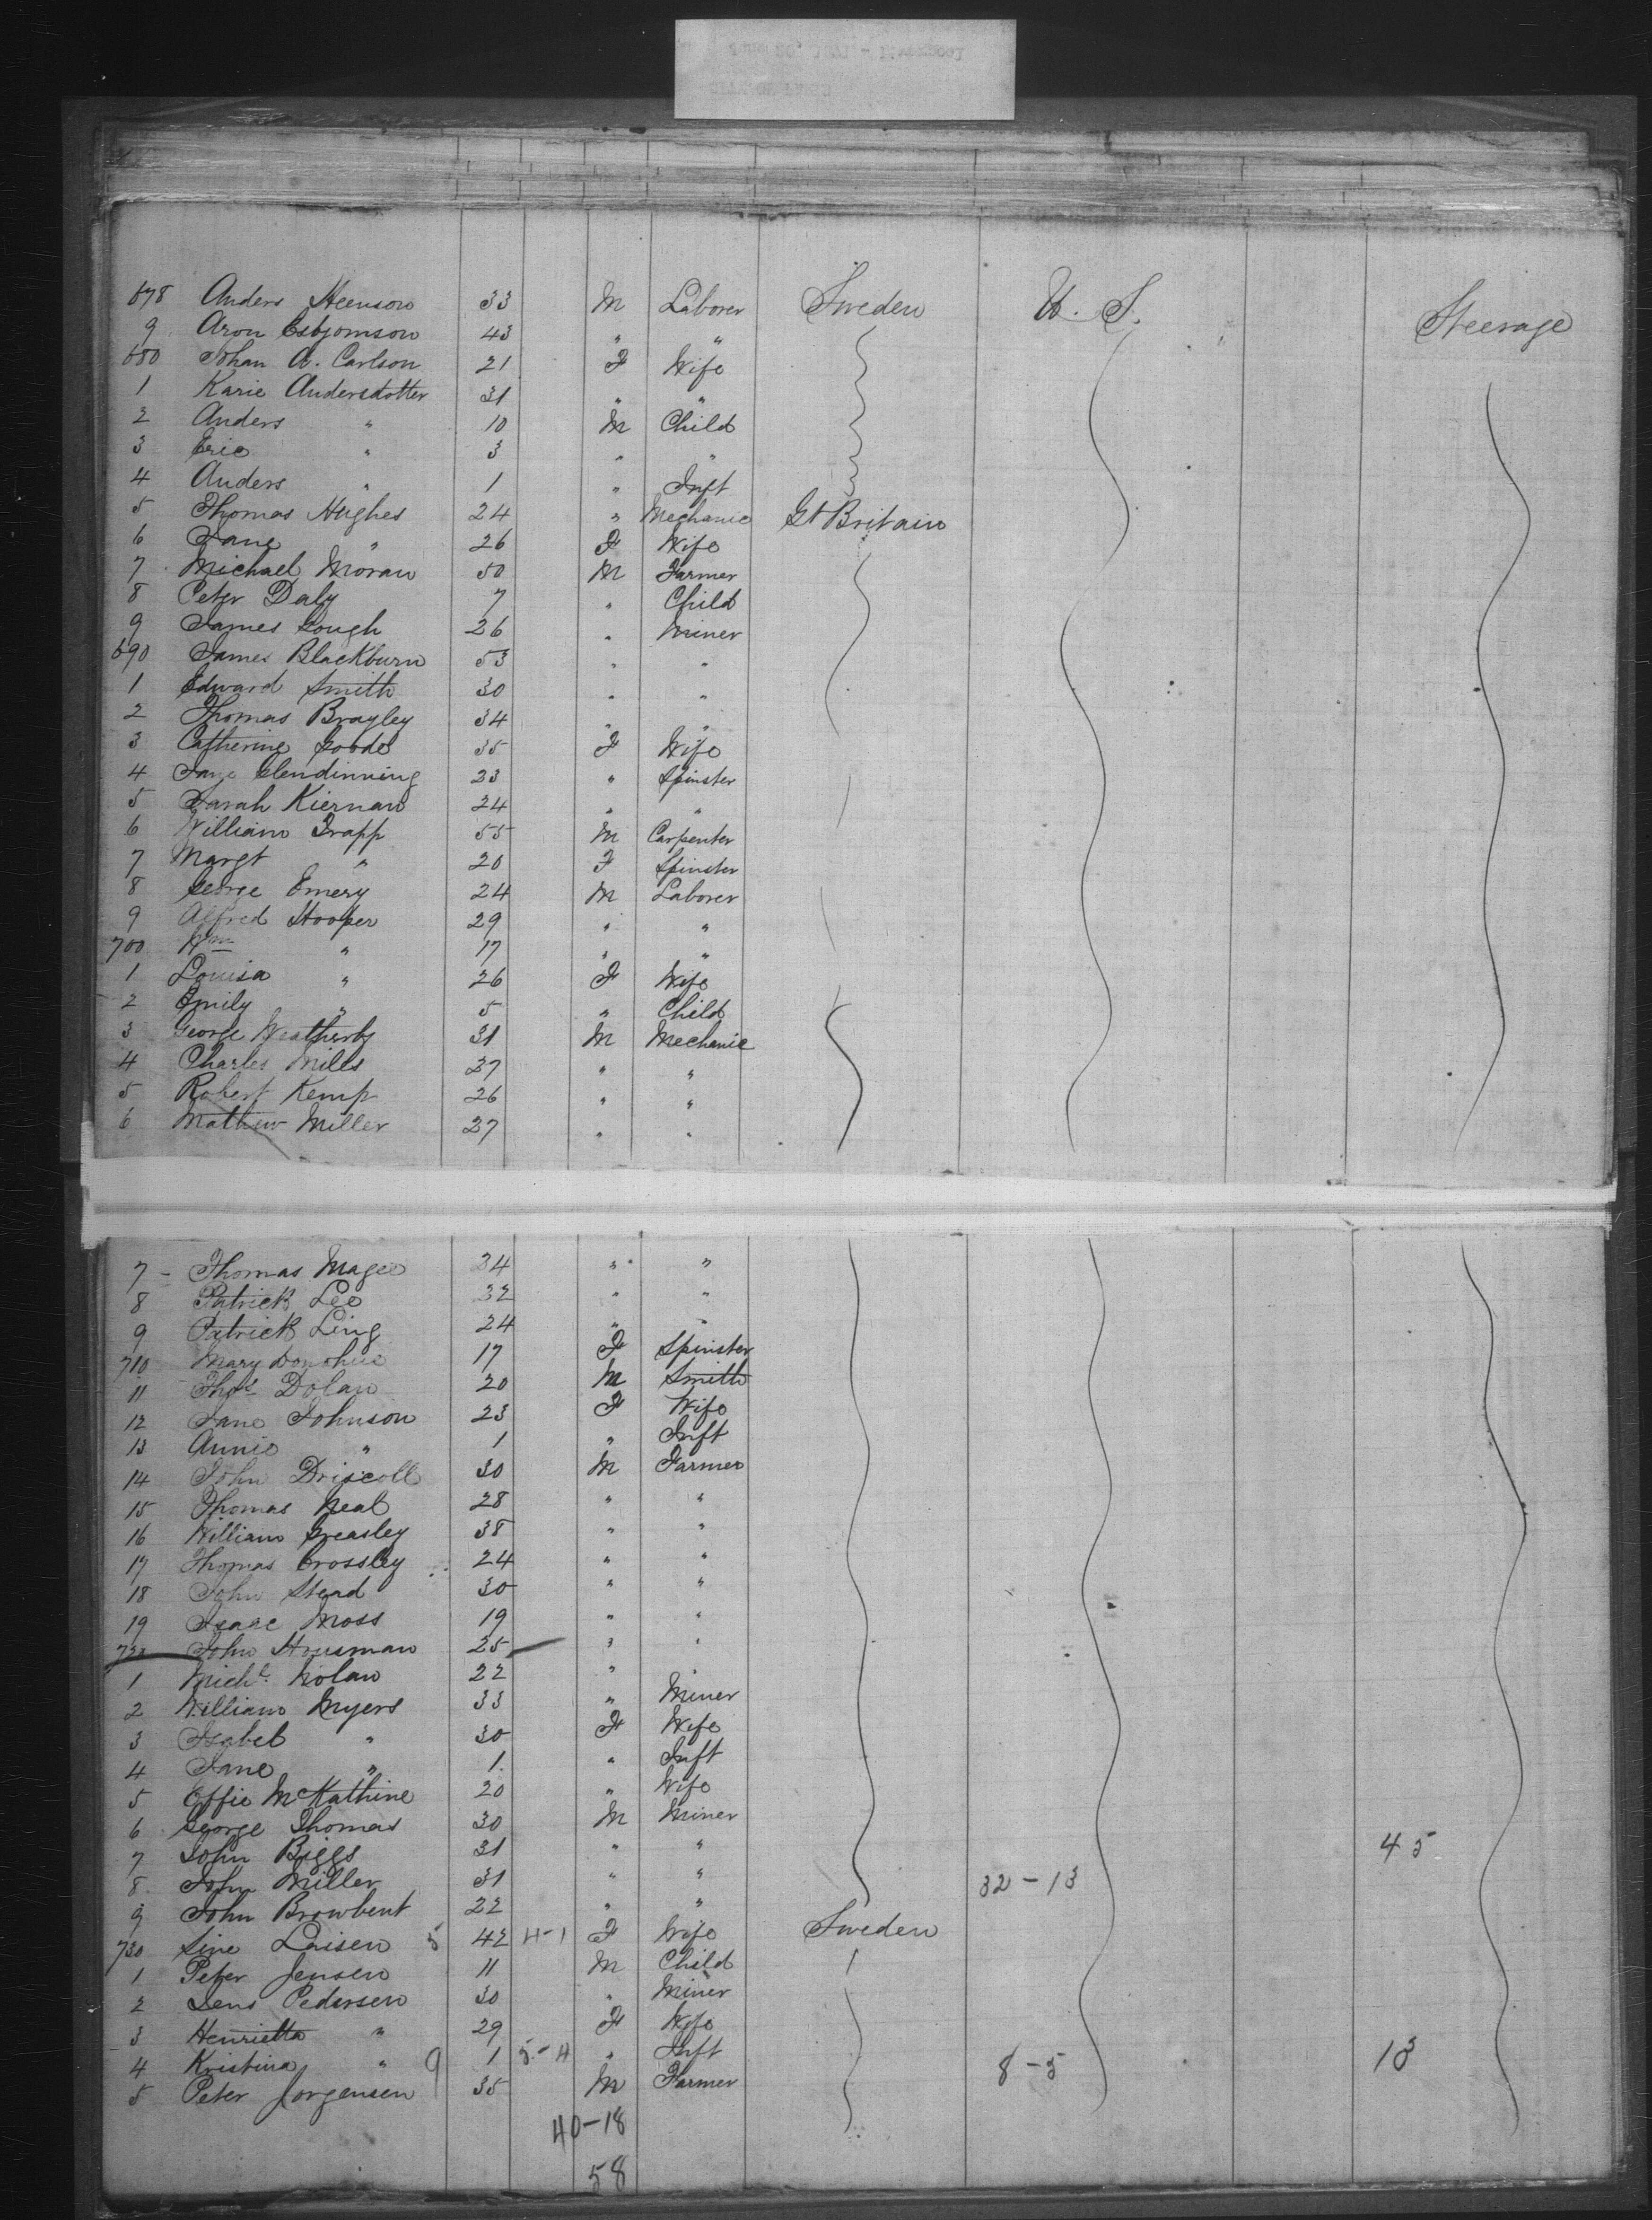 678 Anders Steenson 33 M Laborer Sweden U. S. Steerage
9 Aron Esbjornson 43 " "
680 Johan A. Carlson 21 F Wife
1 Karie Andersdotter 31 " "
2 Anders " 10 M Child
3 Eric " 3 " "
4 Anders " 1 " Inft
5 Thomas Hughes 24 " Mechanic Gt Britain
6 Jane " 26 F Wife
7 Michael Moran 50 M Farmer
8 Peter Daly 7 " Child
9 James Gough 26 " Miner
690 James Blackburn 53 " "
1 Edward Smith 30 " "
2 Thomas Brayley 34 " "
3 Catherine Goode 35 F Wife
4 Jane Clendinning 23 " Spinster
5 Sarah Kiernan 24 " "
6 William Grapp 55 M Carpenter
7 Margt " 20 F Spinster
8 George Emery 24 M Laborer
9 Alfred Hooper 29 " "
700 Wm " 17 " "
1 Louisa " 26 F Wife
2 Emily " 5 " Child
3 George Weatherby 31 M Mechanic
4 Charles Mills 27 " "
5 Robert Kemp 26 " "
6 Mathew Miller 27 " "
7 - Thomas Magee 24 " "
8 Patrick Lee 32 " "
9 Patrick Ling 24 " "
710 Mary Donohue 17 F Spinster
11 Thos Dolan 20 M Smith
12 Jane Johnson 23 F Wife
13 Annie " 1 " Inft
14 John Driscoll 30 M Farmer
15 Thomas Neal 28 " "
16 William Greasley 38 " "
17 Thomas Crossley 24 " "
18 John Stead 30 " "
19 Isaac Moss 19 " "
720 John Housman 25 " "
1 Michl. Nolan 22 " "
2 William Myers 33 " Miner
3 Isabel " 30 F Wife
4 Jane " 1 " Inft
5 Effie McKathine 20 " Wife
6 George Thomas 30 M Miner
7 John Biggs 31 " " 45
8 John Miller 31 " " 32-13
9 John Browbent 22 " "
730 Sine Laisen 5 42 4-1 F Wife Sweden
1 Peter Jensen 11 M Child
2 Jens Pedersen 30 " Miner
3 Henrietta " 29 F Wife
4 Kristina " 9 1 5-4 " Inft 8-5 13
5 Peter Jorgensen 35 M Farmer
40-18
58